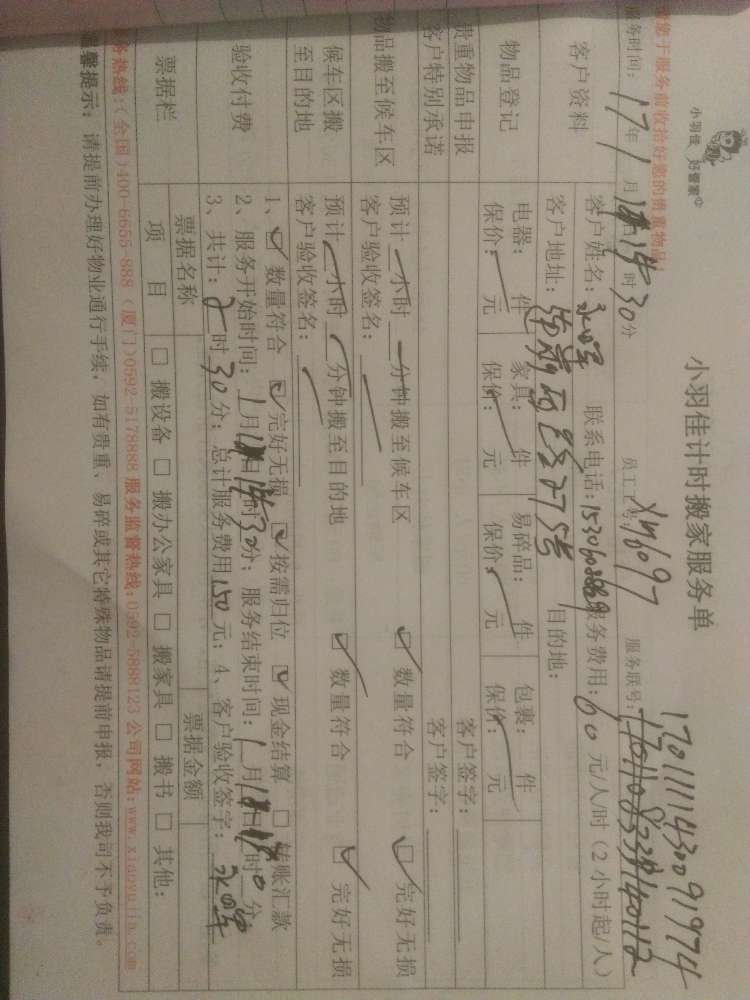 小羽佳 好管家
小羽佳计时搬家服务单
170111143009 1974
请您于服务前收拾好您的贵重物品!
服务时间: 17年 1月 时30分
员工工号: xm6097
服务联号:
客户资料
客户姓名: 联系电话: 服务费用: 60 元/人/时 (2小时起/人)
客户地址: 目的地:
物品登记
电器: 件 家具: 件 易碎品: 件 包裹: 件
保价: 元 保价: 元 保价: 元 保价: 元
贵重物品申报 客户签字:
客户特别承诺 客户签字:
物品搬至候车区
预计 小时 分钟搬至候车区 ☑ 数量符合 ☑ 完好无损
客户验收签名:
候车区搬至目的地
预计 小时 分钟搬至目的地 ☑ 数量符合 ☑ 完好无损
客户验收签名:
验收付费
1、☑ 数量符合 ☑ 完好无损 ☑ 按需归位 ☑ 现金结算 □ 转账汇款
2、服务开始时间: 1月 日14时30分; 服务结束时间: 1月 日 时0分
3、共计: 2时30分; 总计服务费用150元; 4、客户验收签字:
票据栏
票据名称 票据金额
项目 □ 搬设备 □ 搬办公家具 □ 搬家具 □ 搬书 □ 其他:
服务热线:(全国)400-6655-888 (厦门)0592-5178888 服务监督热线:0592-5888123 公司网站:www.xiaoyujia.com
温馨提示: 请提前办理好物业通行手续, 如有贵重、易碎或其它特殊物品请提前申报, 否则我司不予负责。